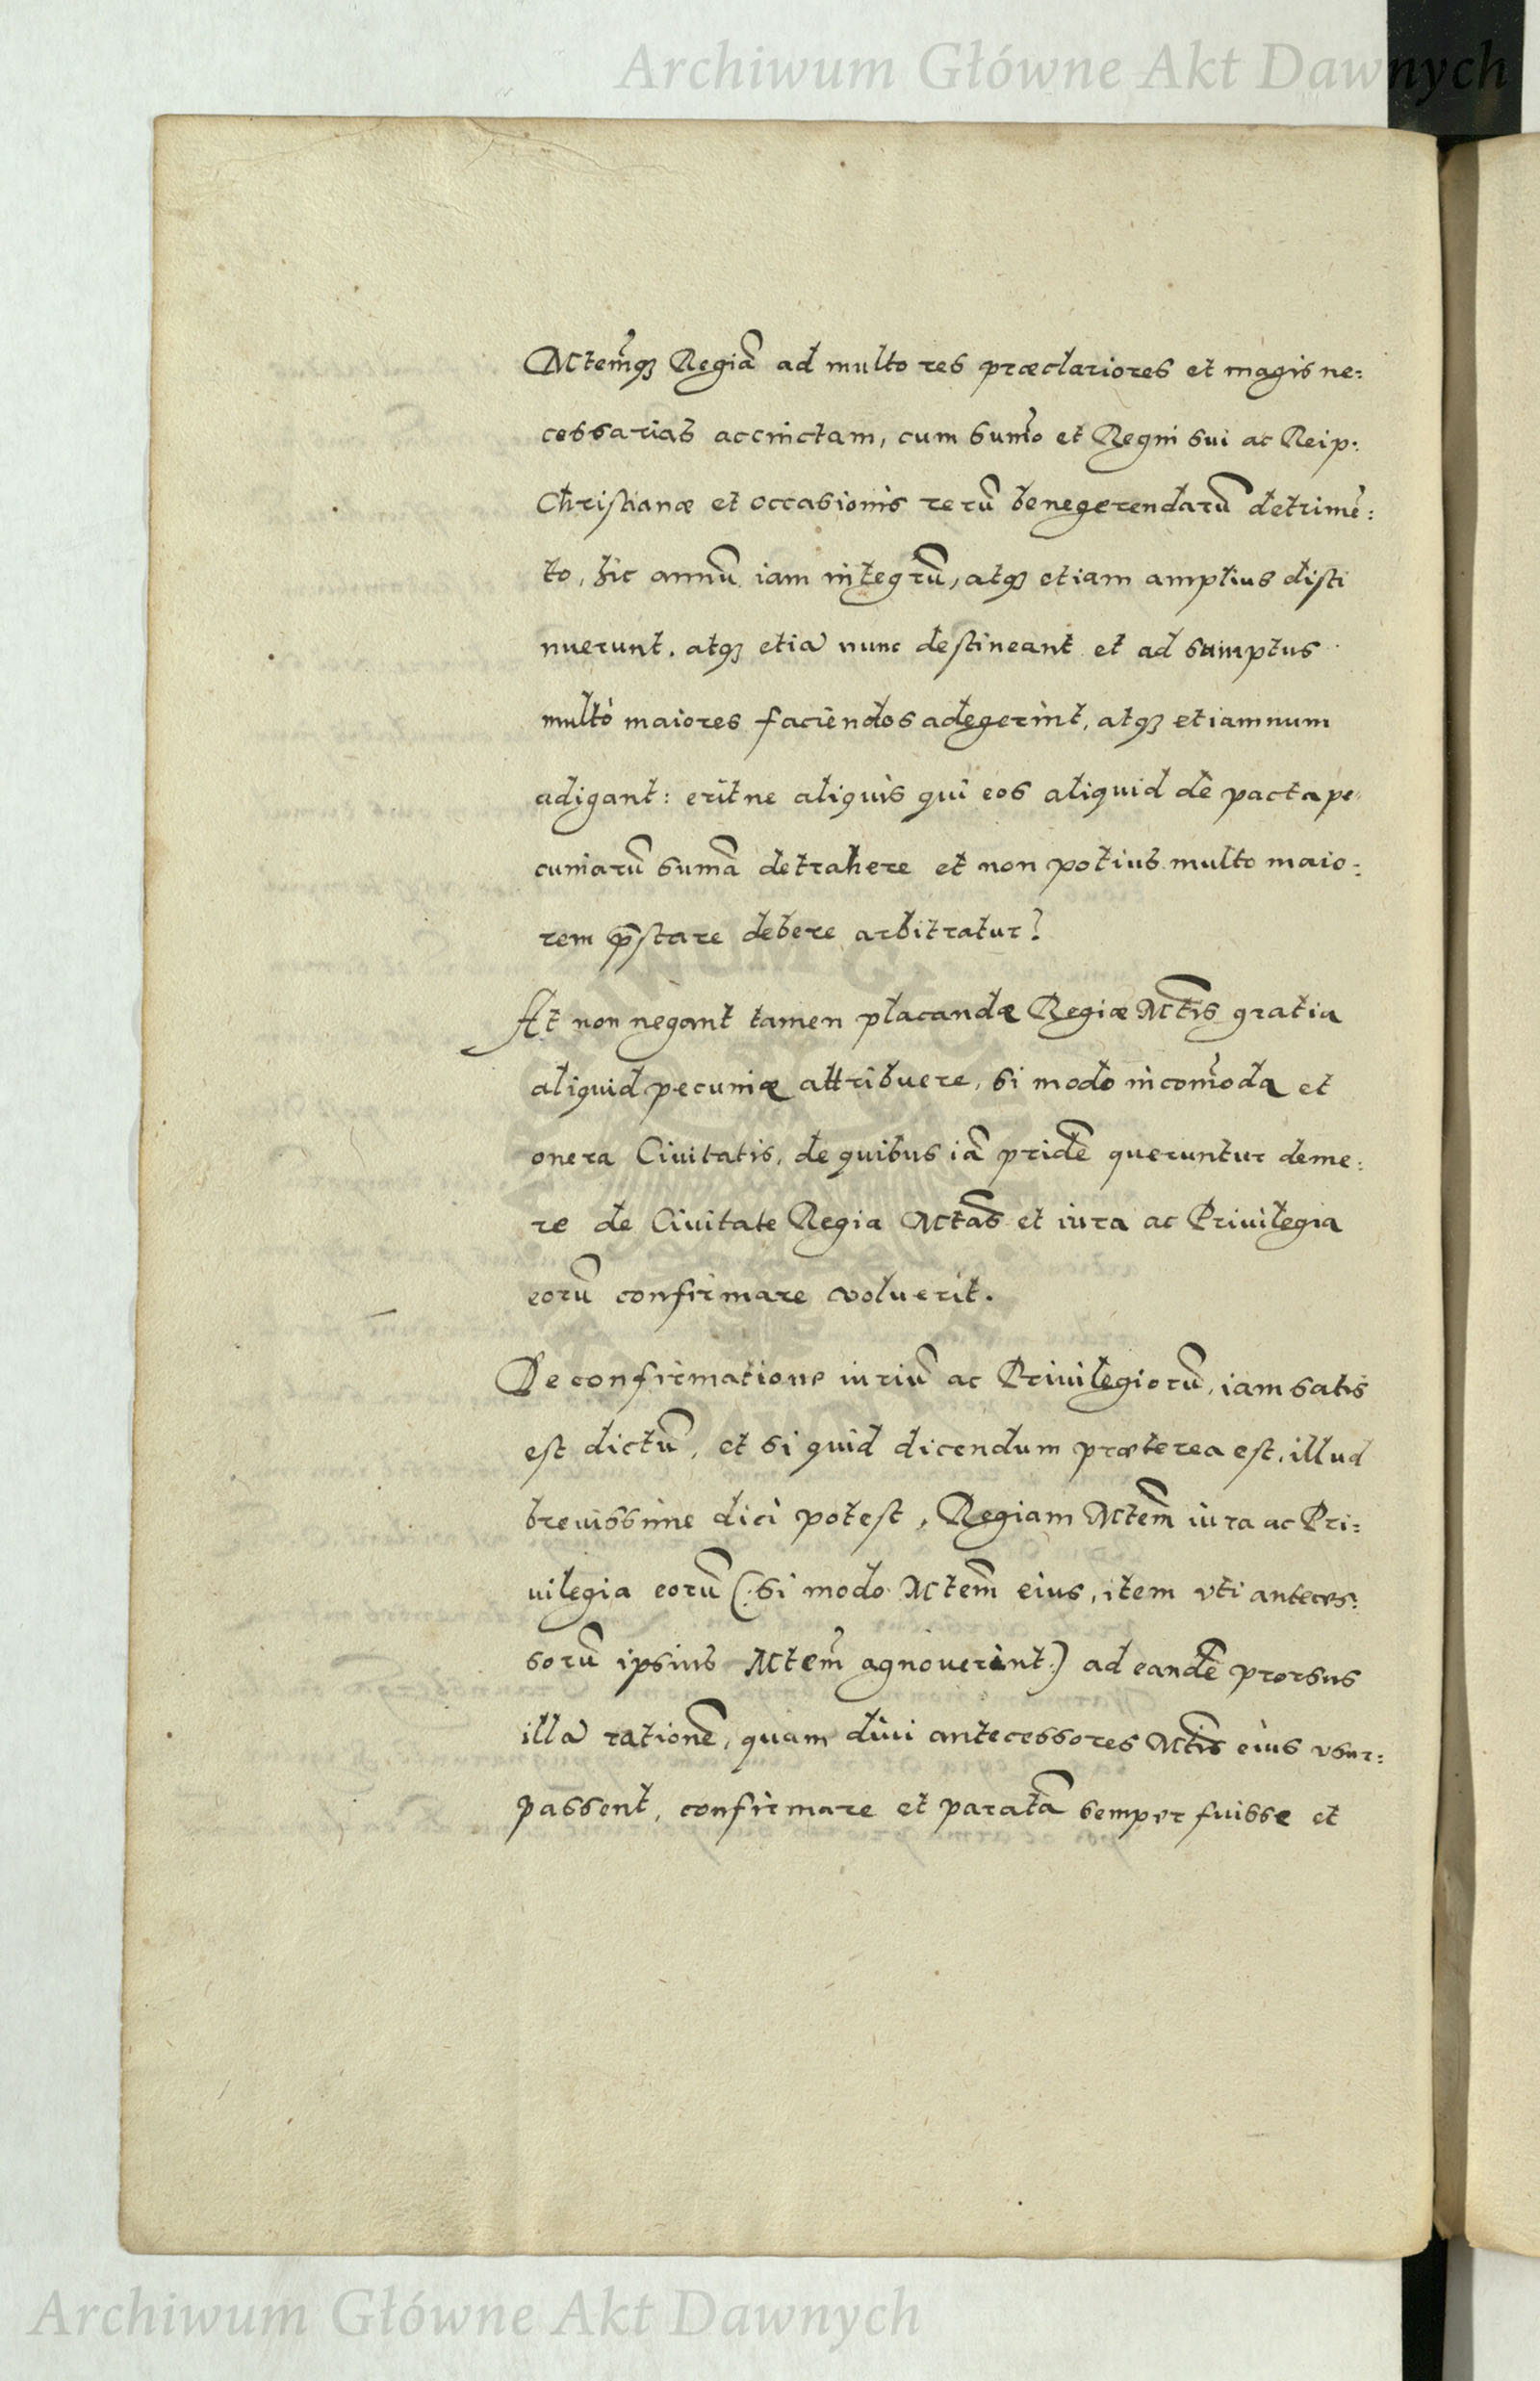 Archiwum Główne Akt Dawnych
Mtem̃qȝ Regiã ad multo res præclariores et magis ne:
cessarias accinctam, cum sum̃o et Regni sui ac Reip:
Christianæ et occasionis rerũ benegerendarũ detrimẽ:
to, hic annũ iam integrũ, atqȝ etiam amplius disti
nuerunt. atqȝ etiã nunc destineant et ad sumptus
multò maiores faciendos adegerint, atqȝ etiamnum
adigant: eritne aliquis qui eos aliquid de pacta pe
cuniarũ sumã detrahere et non potius multo maio:
rem p̃stare debere arbitratur?
At non negant tamen placandæ Regiæ Mtis gratia
aliquid pecuniæ attribuere, si modo incom̃oda et
onera Ciuitatis, de quibus iã pridẽ queruntur deme:
re de Ciuitate Regia Mtas et iura ac Priuilegia
eorũ confirmare voluerit.
De confirmatione iuriũ ac Priuilegiorũ, iam satis
est dictũ, et si quid dicendum præterea est, illud
breuissime dici potest, Regiam Mtem̃ iura ac Pri:
uilegia eorũ (: si modo Mtem̃ eius, item vti anteces:
sorũ ipsius Mtem̃ agnouerint :) ad eandẽ prorsus
illã rationẽ, quam diui antecessores Mtis eius vsur:
passent, confirmare et paratã semper fuisse et
Archiwum Główne Akt Dawnych